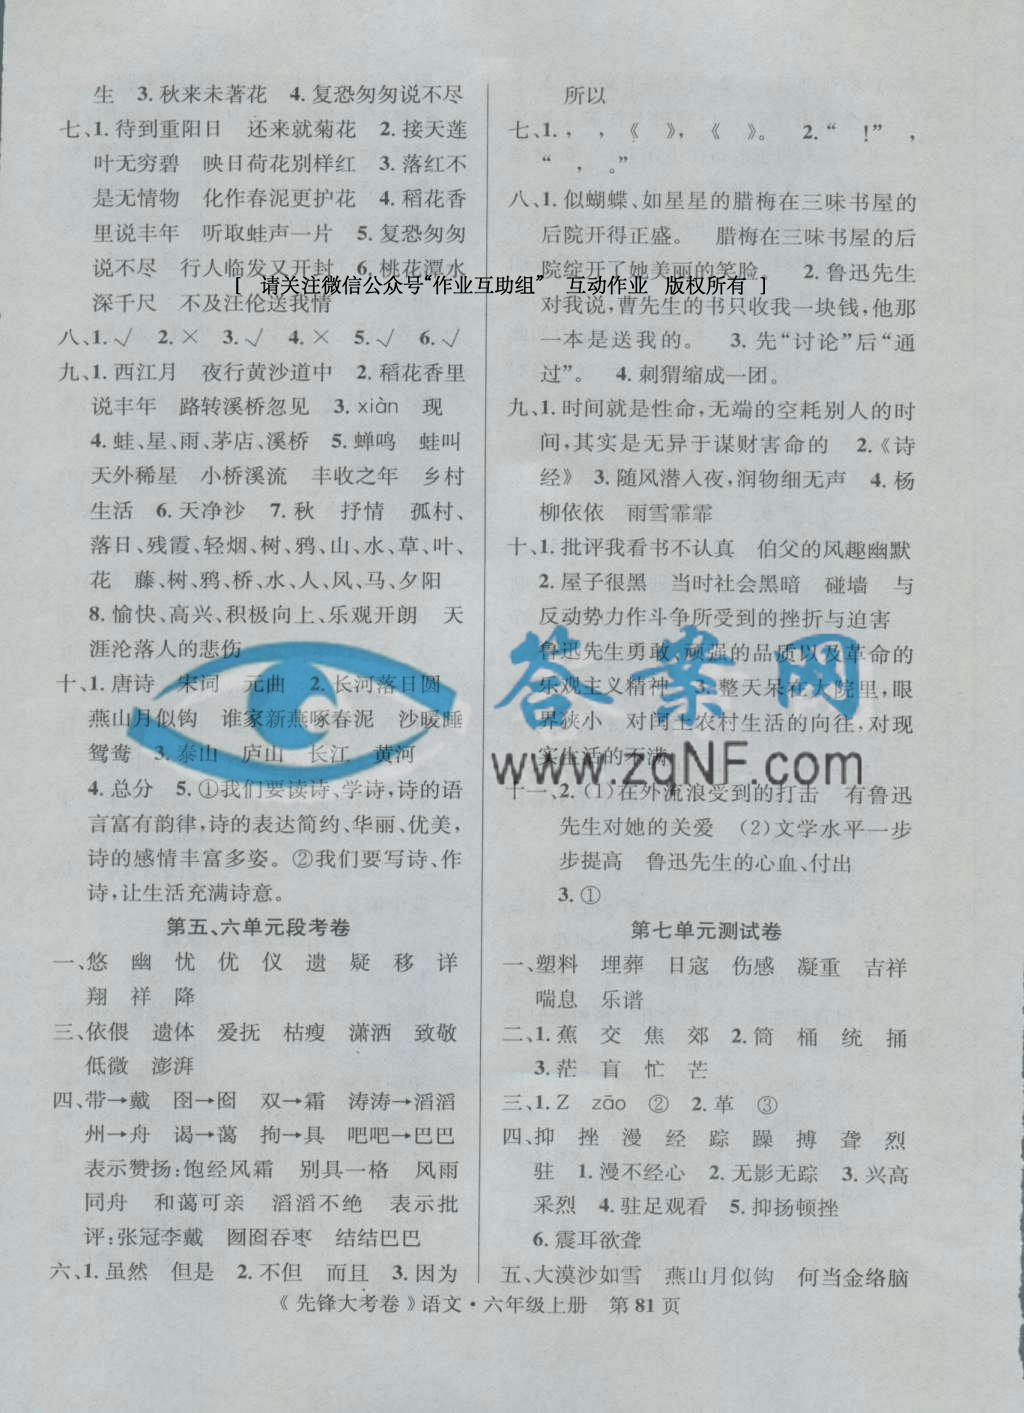 生　3. 秋来未著花　4. 复恐匆匆说不尽
七、1. 待到重阳日　还来就菊花　2. 接天莲
叶无穷碧　映日荷花别样红　3. 落红不
是无情物　化作春泥更护花　4. 稻花香
里说丰年　听取蛙声一片　5. 复恐匆匆
说不尽　行人临发又开封　6. 桃花潭水
深千尺　不及汪伦送我情
八、1. √　2. ×　3. √　4. ×　5. √　6. √
九、1. 西江月　夜行黄沙道中　2. 稻花香里
说丰年　路转溪桥忽见　3. xiàn　现
4. 蛙、星、雨、茅店、溪桥　5. 蝉鸣　蛙叫
天外稀星　小桥溪流　丰收之年　乡村
生活　6. 天净沙　7. 秋　抒情　孤村、
落日、残霞、轻烟、树、鸦、山、水、草、叶、
花　藤、树、鸦、桥、水、人、风、马、夕阳
8. 愉快、高兴、积极向上、乐观开朗　天
涯沦落人的悲伤
十、1. 唐诗　宋词　元曲　2. 长河落日圆
燕山月似钩　谁家新燕啄春泥　沙暖睡
鸳鸯　3. 泰山　庐山　长江　黄河
4. 总分　5. ①我们要读诗、学诗,诗的语
言富有韵律,诗的表达简约、华丽、优美,
诗的感情丰富多姿。②我们要写诗、作
诗,让生活充满诗意。
第五、六单元段考卷
一、悠　幽　忧　优　仪　遗　疑　移　详
翔　祥　降
三、依偎　遗体　爱抚　枯瘦　潇洒　致敬
低微　澎湃
四、带→戴　图→囵　双→霜　涛涛→滔滔
州→舟　谒→蔼　拘→具　吧吧→巴巴
表示赞扬:饱经风霜　别具一格　风雨
同舟　和蔼可亲　滔滔不绝　表示批
评:张冠李戴　囫囵吞枣　结结巴巴
六、1. 虽然　但是　2. 不但　而且　3. 因为
所以
七、1. ，　，《　》，《　》。　2. “　！”，
“　，。”
八、1. 似蝴蝶、如星星的腊梅在三味书屋的
后院开得正盛。　腊梅在三味书屋的后
院绽开了她美丽的笑脸。　2. 鲁迅先生
[　请关注微信公众号“作业互助组”　互动作业　版权所有　]
对我说,曹先生的书只收我一块钱,他那
一本是送我的。　3. 先“讨论”后“通
过”。　4. 刺猬缩成一团。
九、1. 时间就是性命,无端的空耗别人的时
间,其实是无异于谋财害命的　2.《诗
经》　3. 随风潜入夜,润物细无声　4. 杨
柳依依　雨雪霏霏
十、1. 批评我看书不认真　伯父的风趣幽默
2. 屋子很黑　当时社会黑暗　碰墙　与
反动势力作斗争所受到的挫折与迫害
鲁迅先生勇敢、顽强的品质以及革命的
乐观主义精神　3. 整天呆在大院里,眼
界狭小　对闰土农村生活的向往,对现
实生活的不满
十一、2.(1)在外流浪受到的打击　有鲁迅
先生对她的关爱　(2)文学水平一步
步提高　鲁迅先生的心血、付出
3. ①
第七单元测试卷
一、塑料　埋葬　日寇　伤感　凝重　吉祥
喘息　乐谱
二、1. 蕉　交　焦　郊　2. 筒　桶　统　捅
3. 茫　盲　忙　芒
三、1. Z　zāo　②　2. 革　③
四、抑　挫　漫　经　踪　躁　搏　聋　烈
驻　1. 漫不经心　2. 无影无踪　3. 兴高
采烈　4. 驻足观看　5. 抑扬顿挫
6. 震耳欲聋
五、大漠沙如雪　燕山月似钩　何当金络脑
《先锋大考卷》语文·六年级上册　第 81 页
答案网
www.zqNF.com